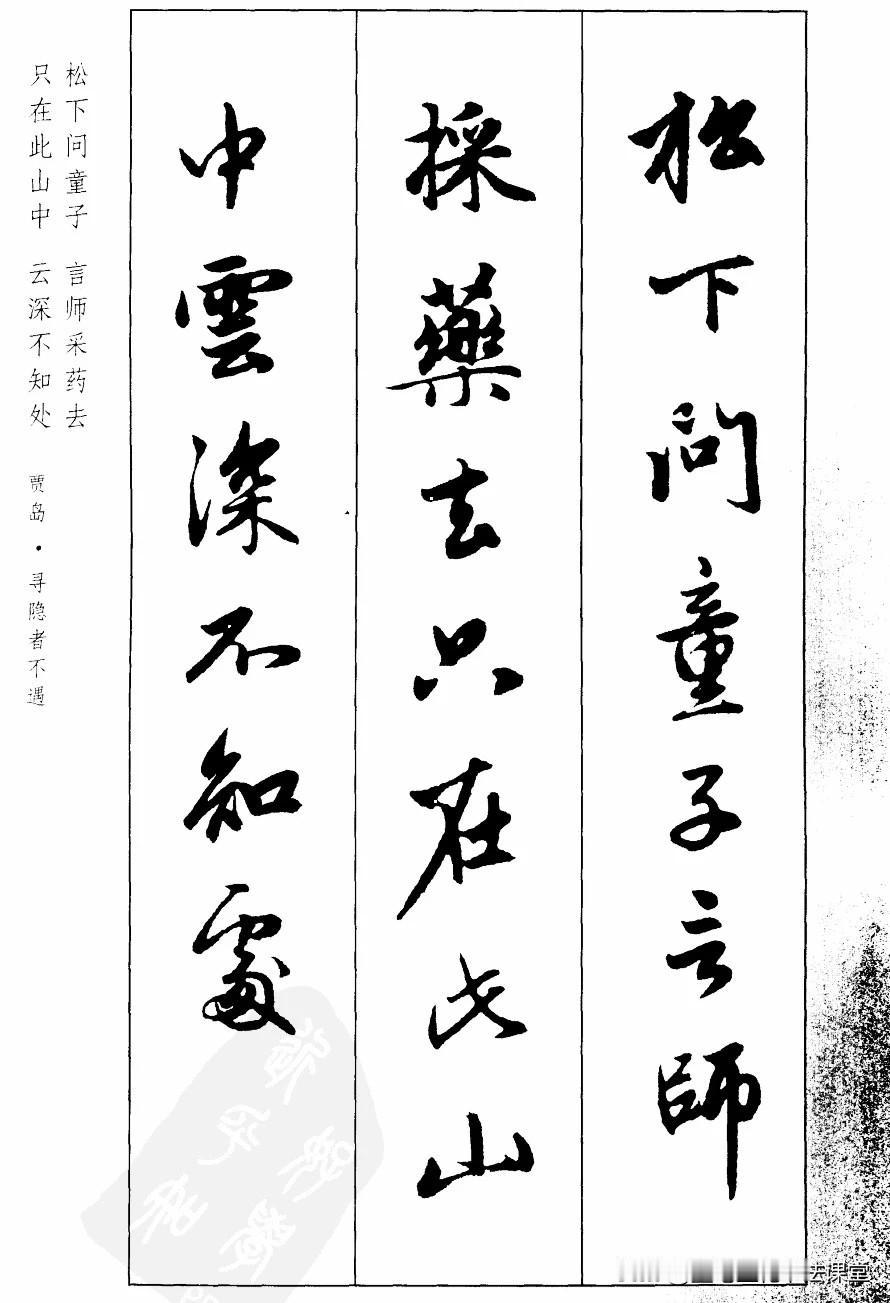 松下问童子言師
採藥去只在此山
中雲深不知處
松下问童子 言师采药去
只在此山中 云深不知处
贾岛·寻隐者不遇
去课堂